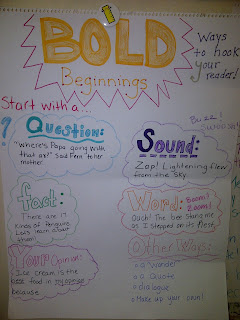 BOLD
Beginnings
Ways
to hook
your
reader!
Start with a...
?
Question:
"Where's Papa
going with
that ax?" Said Fern to her
mother.
Buzz!
Sound:
Zap! Lightening flew
from the sky
fact:
There are 17
Kinds of Penguins
Let's learn about
them!
Word:
Boom!
Zoom!
Ouch! The bee stung me
as I stepped on its nest.
Your Opinion:
Ice cream is the
food in my opinion
because
Other Ways:
a Wonder
a Quote
dialogue
Make up your own!